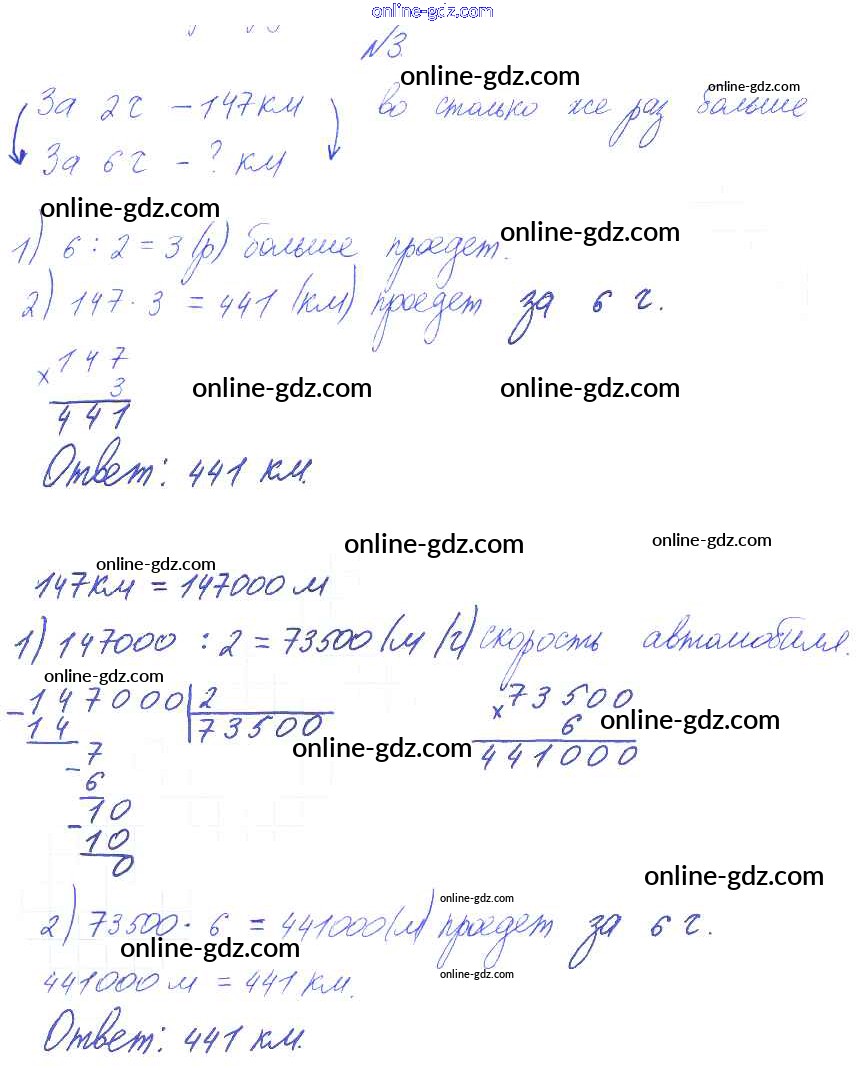 online-gdz.com
№3.
online-gdz.com
online-gdz.com
За 2ч – 147км во столько же раз больше
За 6ч – ? км
online-gdz.com
online-gdz.com
1) 6 : 2 = 3 (р) больше проедет.
2) 147 · 3 = 441 (км) проедет за 6 ч.
× 147
3
online-gdz.com online-gdz.com
441
Ответ: 441 км.
online-gdz.com online-gdz.com
online-gdz.com
147км = 147000 м
1) 147000 : 2 = 73500 (м/ч) скорость автомобиля.
online-gdz.com
– 147000 | 2 × 73500
14 73500 6 online-gdz.com
online-gdz.com
– 7 441000
6
– 10
10
0
online-gdz.com
online-gdz.com
2) 73500 · 6 = 441000 (м) проедет за 6 ч.
online-gdz.com
online-gdz.com
441000 м = 441 км.
Ответ: 441 км.
online-gdz.com